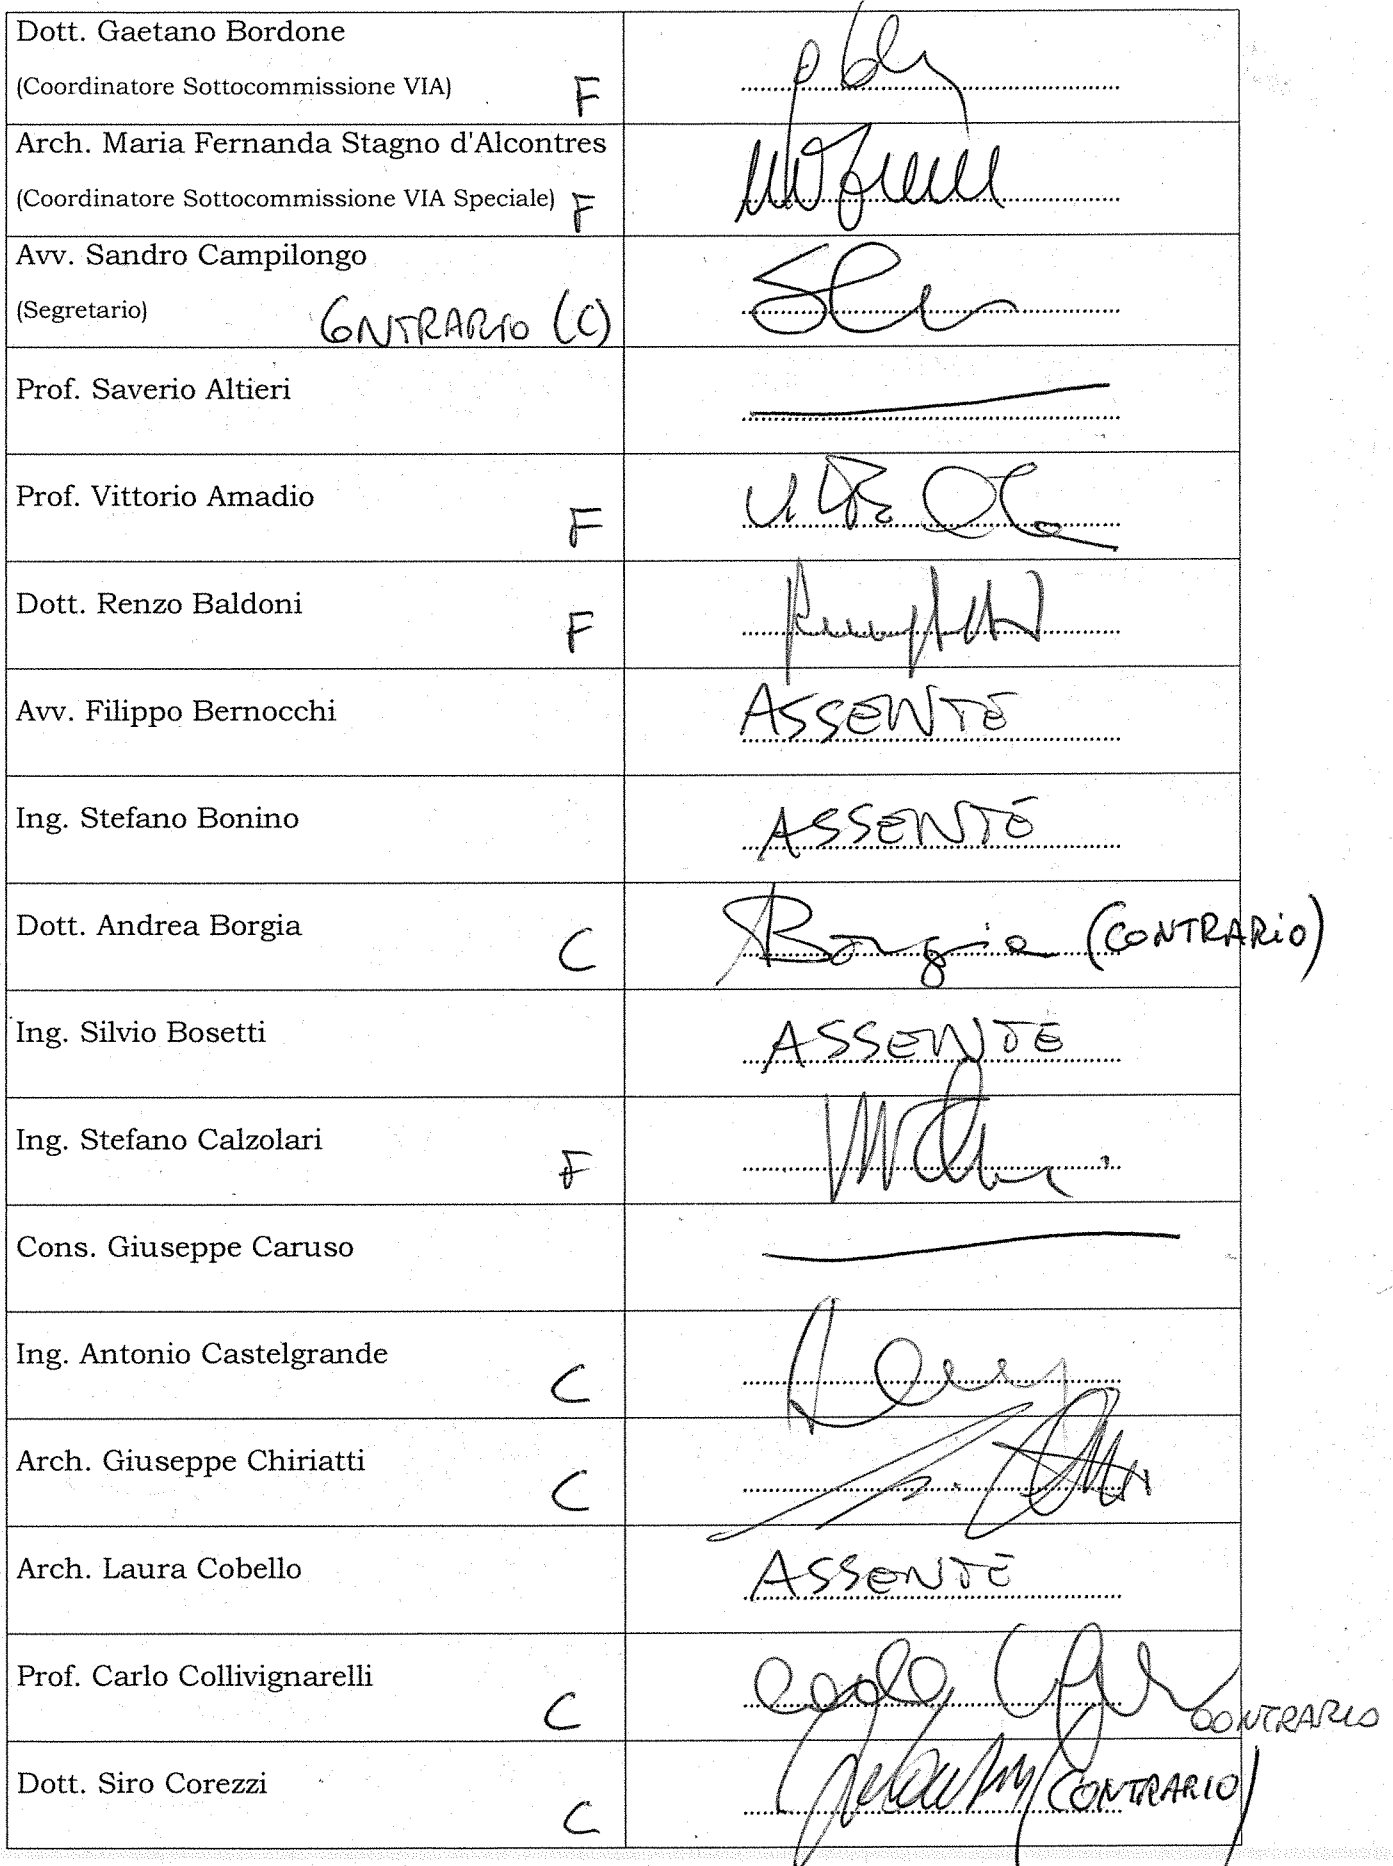 Dott. Gaetano Bordone
(Coordinatore Sottocommissione VIA) F
Arch. Maria Fernanda Stagno d'Alcontres
(Coordinatore Sottocommissione VIA Speciale) F
Avv. Sandro Campilongo
(Segretario) CONTRARIO (C)
Prof. Saverio Altieri
Prof. Vittorio Amadio
F
Dott. Renzo Baldoni
F
Avv. Filippo Bernocchi ASSENTE
Ing. Stefano Bonino ASSENTE
Dott. Andrea Borgia C Borgia (CONTRARIO)
Ing. Silvio Bosetti ASSENTE
Ing. Stefano Calzolari
F
Cons. Giuseppe Caruso
Ing. Antonio Castelgrande
C
Arch. Giuseppe Chiriatti
C
Arch. Laura Cobello ASSENTE
Prof. Carlo Collivignarelli
C CONTRARIO
Dott. Siro Corezzi (CONTRARIO)
C